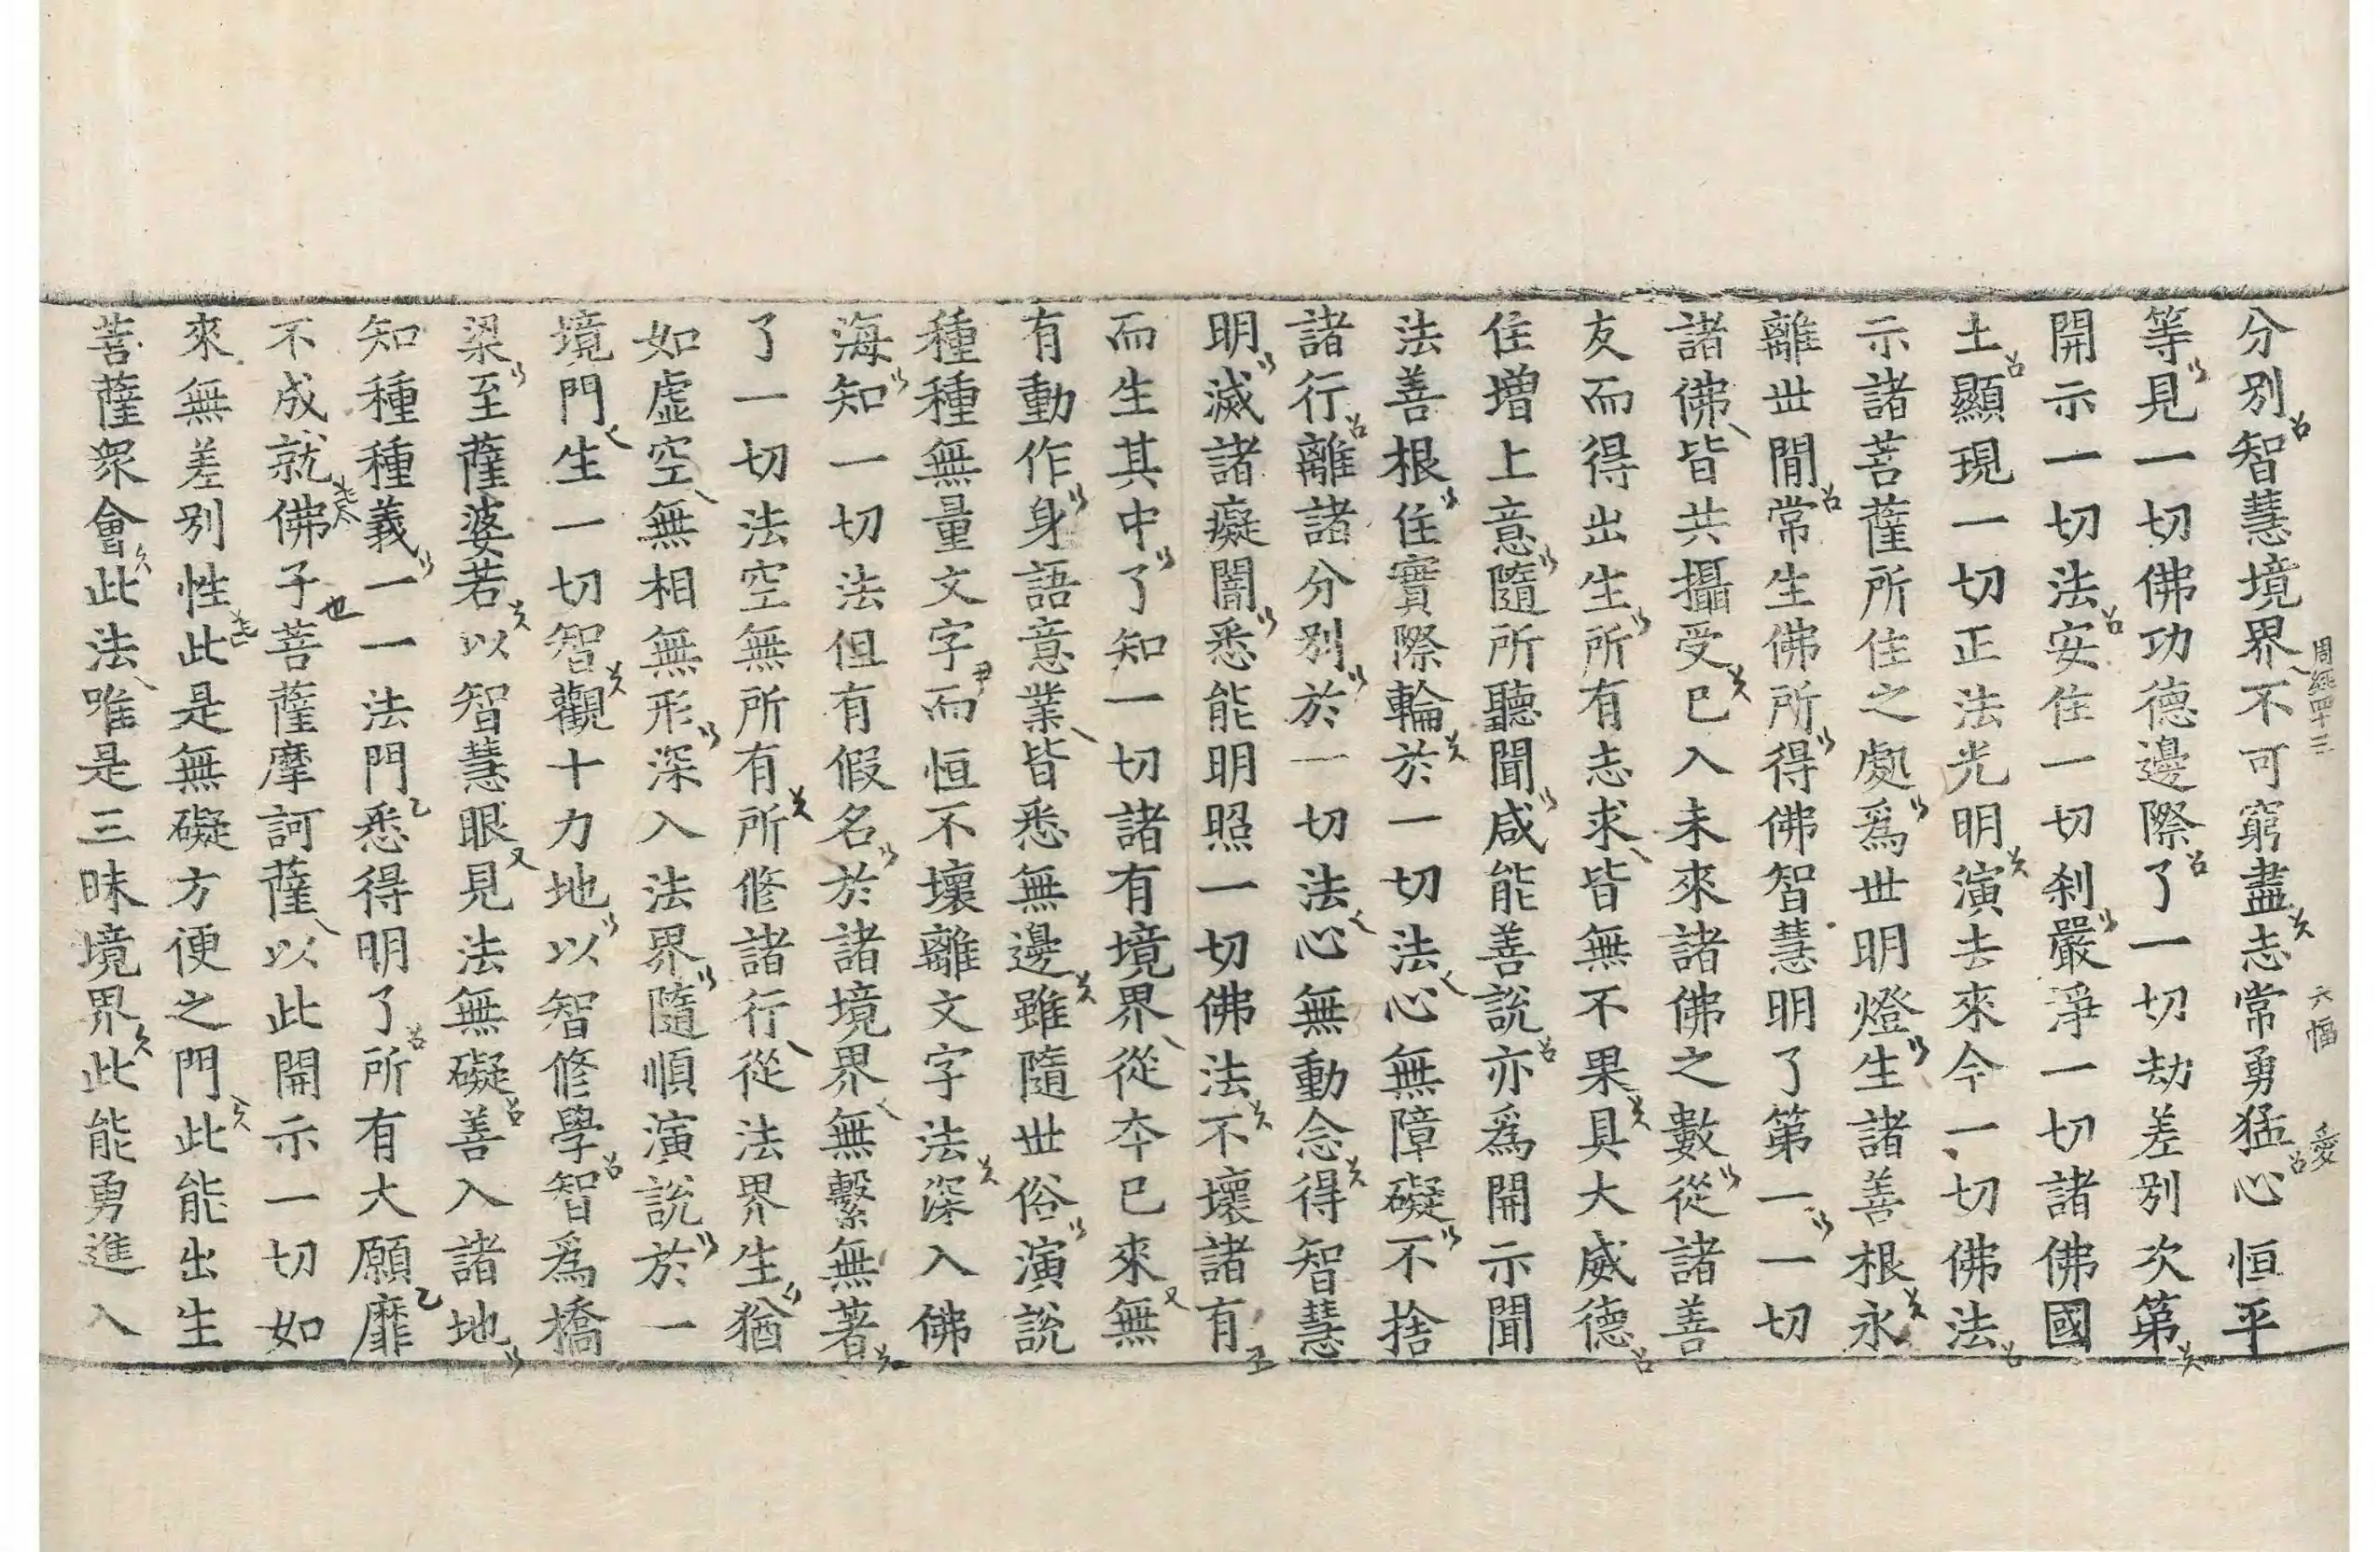 分別智慧境界不可窮盡志常勇猛心恒平
等見一切佛功德邊際了一切劫差別次第
開示一切法安住一切刹嚴淨一切諸佛國
土顯現一切正法光明演去來今一切佛法
示諸菩薩所住之處爲世明燈生諸善根永
離世間常生佛所得佛智慧明了第一一切
諸佛皆共攝受已入未來諸佛之數從諸善
友而得出生所有志求皆無不果具大威德
住增上意隨所聽聞咸能善說亦爲開示聞
法善根住實際輪於一切法心無障礙不捨
諸行離諸分別於一切法心無動念得智慧
明滅諸癡闇悉能明照一切佛法不壞諸有
而生其中了知一切諸有境界從本已來無
有動作身語意業皆悉無邊雖隨世俗演說
種種無量文字而恒不壞離文字法深入佛
海知一切法但有假名於諸境界無繫無著
了一切法空無所有所修諸行從法界生猶
如虛空無相無形深入法界隨順演說於一
境門生一切智觀十力地以智修學智爲橋
梁至薩婆若以智慧眼見法無礙善入諸地
知種種義一一法門悉得明了所有大願靡
不成就佛子菩薩摩訶薩以此開示一切如
來無差別性此是無礙方便之門此能出生
菩薩眾會此法唯是三昧境界此能勇進入
周經四十三
六幅
愛